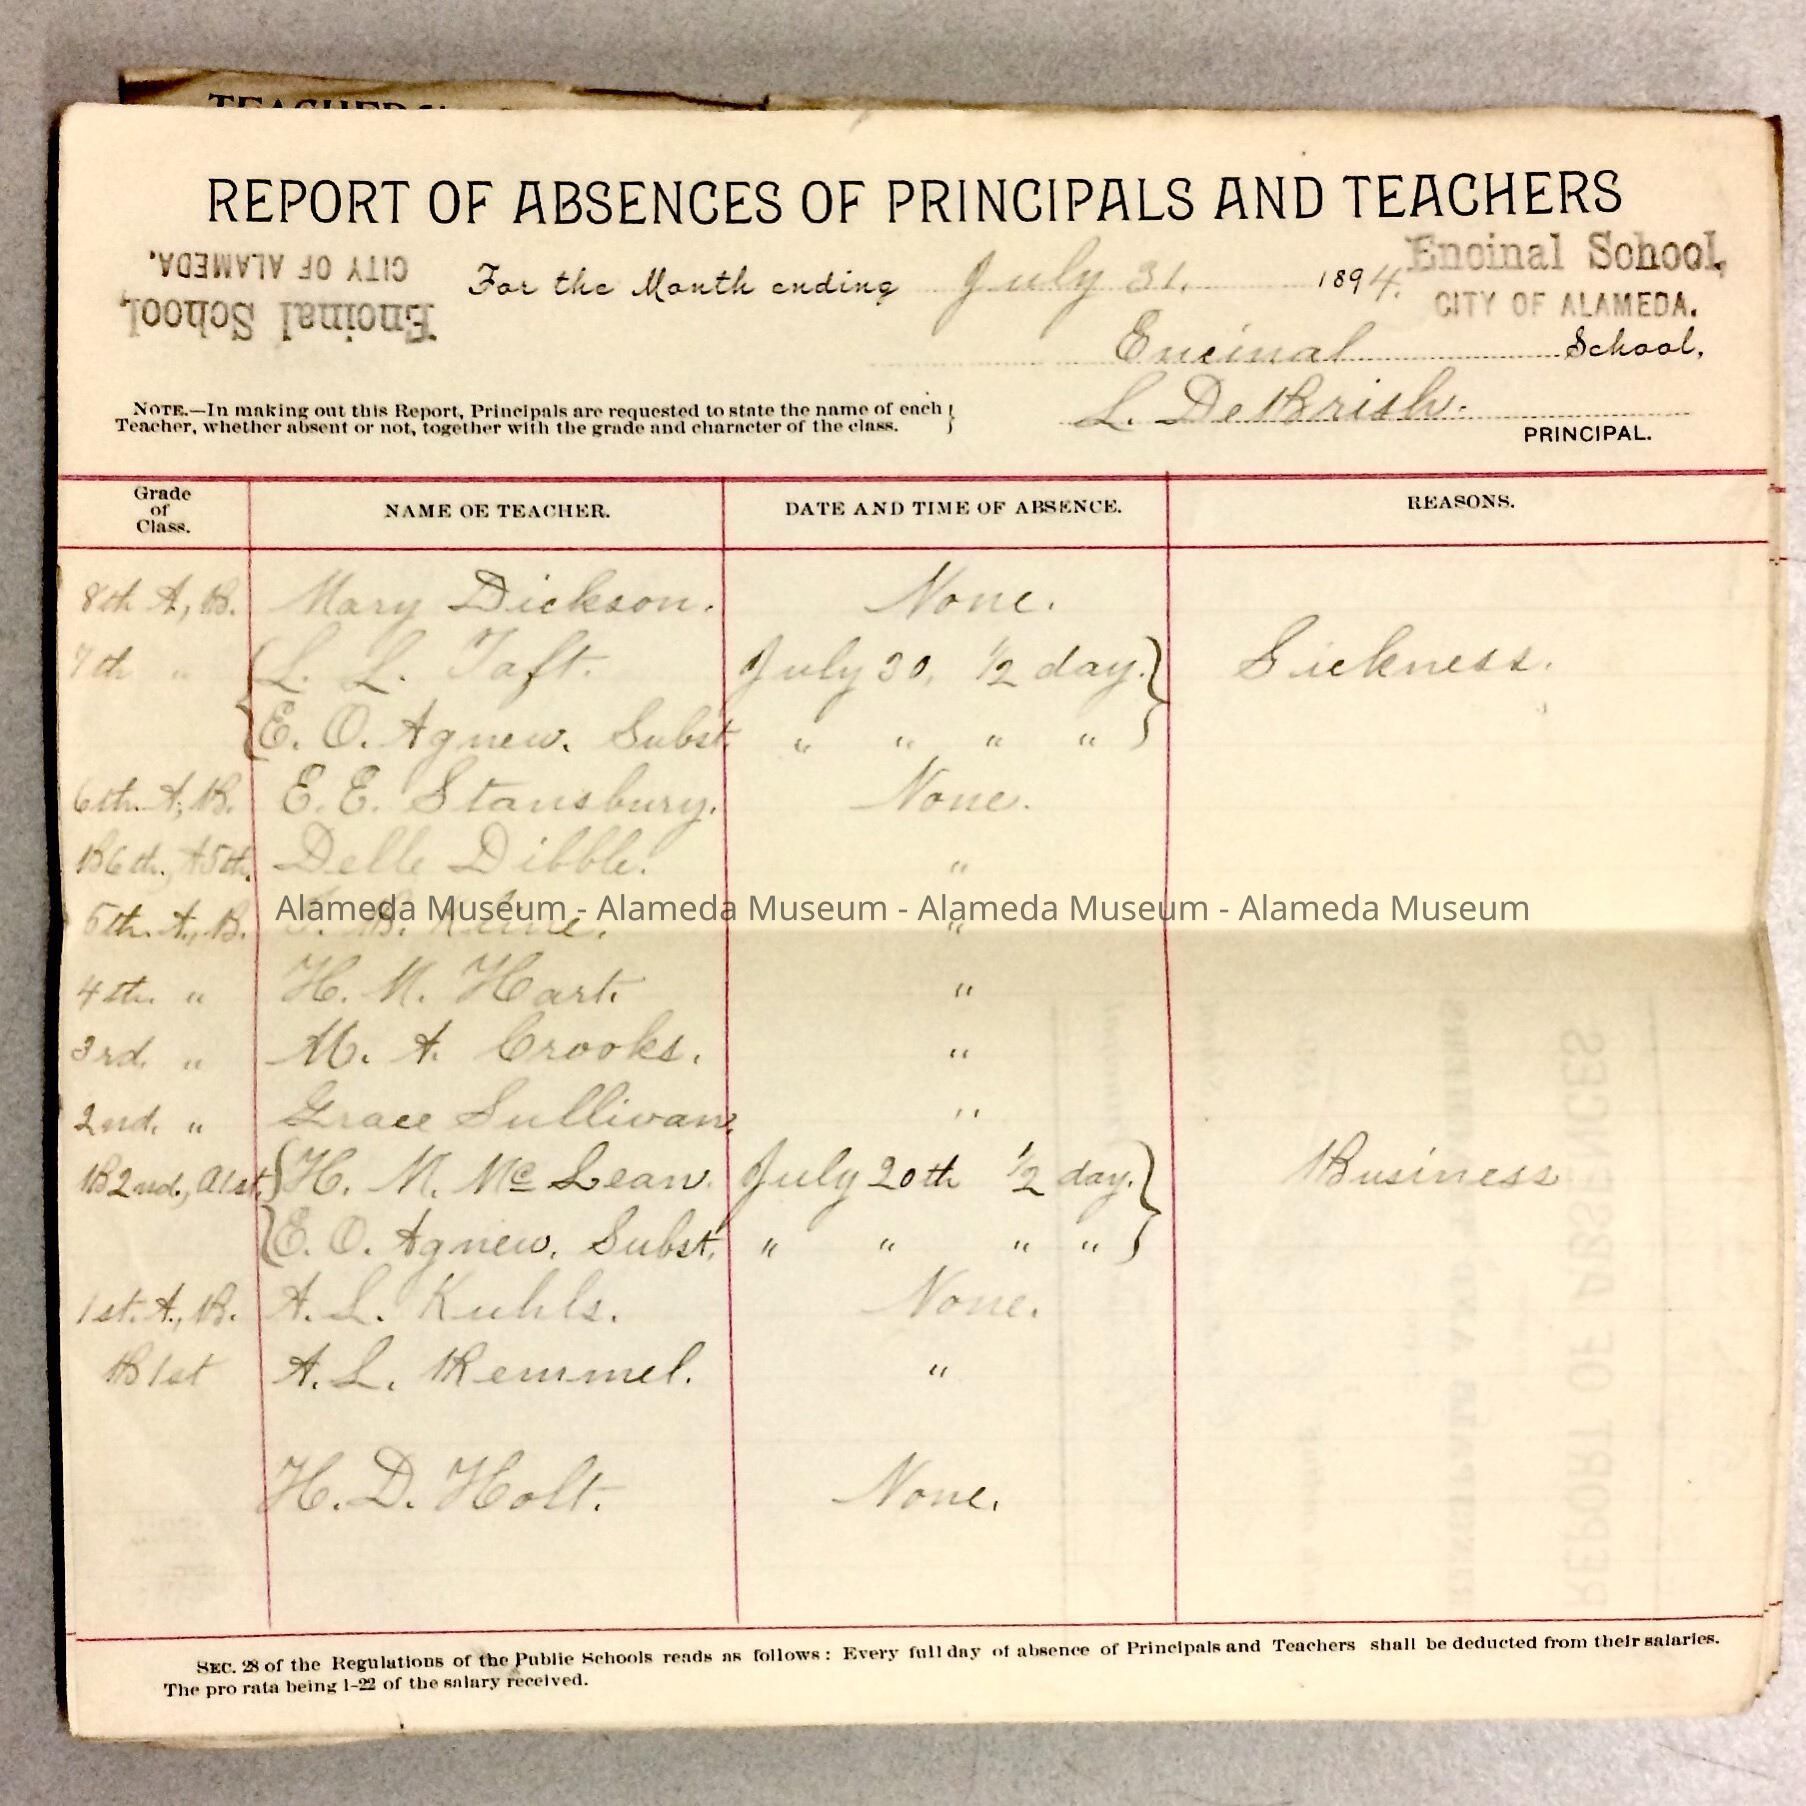 REPORT OF ABSENCES OF PRINCIPALS AND TEACHERS
Encinal School,
CITY OF ALAMEDA.
For the Month ending July 31. 1894.
Encinal School,
CITY OF ALAMEDA.
Encinal School,
NOTE.—In making out this Report, Principals are requested to state the name of each
Teacher, whether absent or not, together with the grade and character of the class.
L. PRINCIPAL.
Grade of Class. NAME OF TEACHER. DATE AND TIME OF ABSENCE. REASONS.
8th A, B. Mary Dickson. None.
7th " L. L. Taft. July 30, 1/2 day. Sickness.
E. O. Agnew. Subst. " " " "
6th A, B. E. E. Stansbury. None.
B 6th, A 5th. Delle Dibble. "
Alameda Museum - Alameda Museum - Alameda Museum - Alameda Museum
5th A., B. "
4th. " H. M. Hart. "
3rd. " M. A. Crooks. "
2nd. " Grace Sullivan. "
B 2nd., A 1st. H. M. McLean. July 20th 1/2 day. Business
E. O. Agnew, Subst. " " " "
1st. A., B. A. L. Kuhls. None.
B 1st A. L. Remmel. "
H. D. Holt. None.
SEC. 28 of the Regulations of the Public Schools reads as follows: Every full day of absence of Principals and Teachers shall be deducted from their salaries.
The pro rata being 1-22 of the salary received.